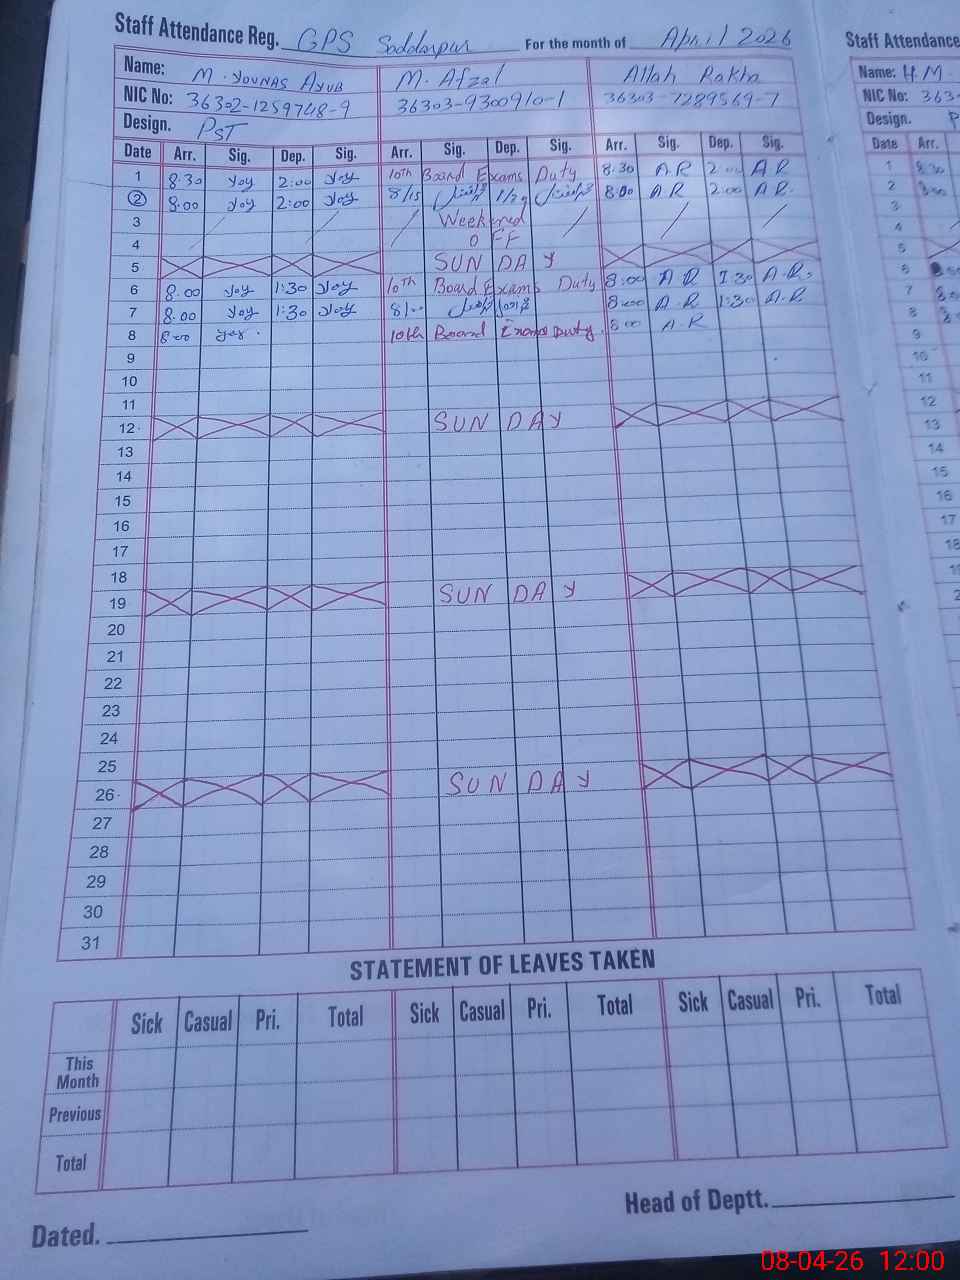 Staff Attendance Reg. GPS Saddarpur For the month of April 2026
Name: M. YOUNAS AYUB M. Afzal Allah Rakha
NIC No: 36302-1259748-9 36303-9300910-1 36303-7289569-7
Design. PST
Date Arr. Sig. Dep. Sig. Arr. Sig. Dep. Sig. Arr. Sig. Dep. Sig.
1 8:30 2:00 10th Board Exams Duty 8:30 A R 2:00 A R
2 8:00 2:00 8/15 8:00 A R 2:00 A R.
3 Weekened
4 OFF
5 SUN DAY
6 8:00 1:30 10th Board Exams Duty 8:00 A R 1:30 A.R.
7 8:00 1:30 8/00 8:00 A.R 1:30 A.R
8 8:00 10th Board Exams Duty. 8:00 A.R
9
10
11
12 SUN DAY
13
14
15
16
17
18
19 SUN DAY
20
21
22
23
24
25
26 SUN DAY
27
28
29
30
31
STATEMENT OF LEAVES TAKEN
Sick Casual Pri. Total Sick Casual Pri. Total Sick Casual Pri. Total
This
Month
Previous
Total
Dated. Head of Deptt.
Staff Attendance
Name: H.M.
NIC No: 363
Design. P
Date Arr.
1 8:30
2 8:00
3
4
5
6
7
8
9
10
11
12
13
14
15
16
17
18
08-04-26 12:00